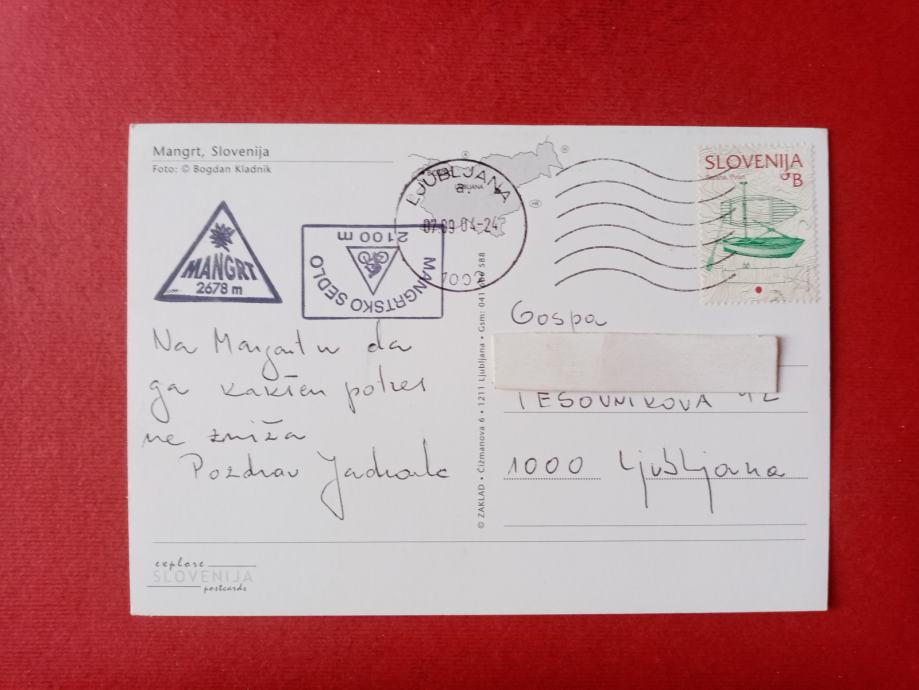 Mangrt, Slovenija
Foto: © Bogdan Kladnik
MANGRT
2678 m
MANGRTSKO SEDLO
2100 m
LJUBLJANA
a.
07.09.04-24
SLOVENIJA
B
Na Mangrtu da
ga kakšen potres
ne zniža
Pozdrav
© ZAKLAD • Čižmanova 6 • 1211 Ljubljana • Gsm: 041 588
Gospa
TESOVNIKOVA
1000 Ljubljana
explore
SLOVENIJA
postcards